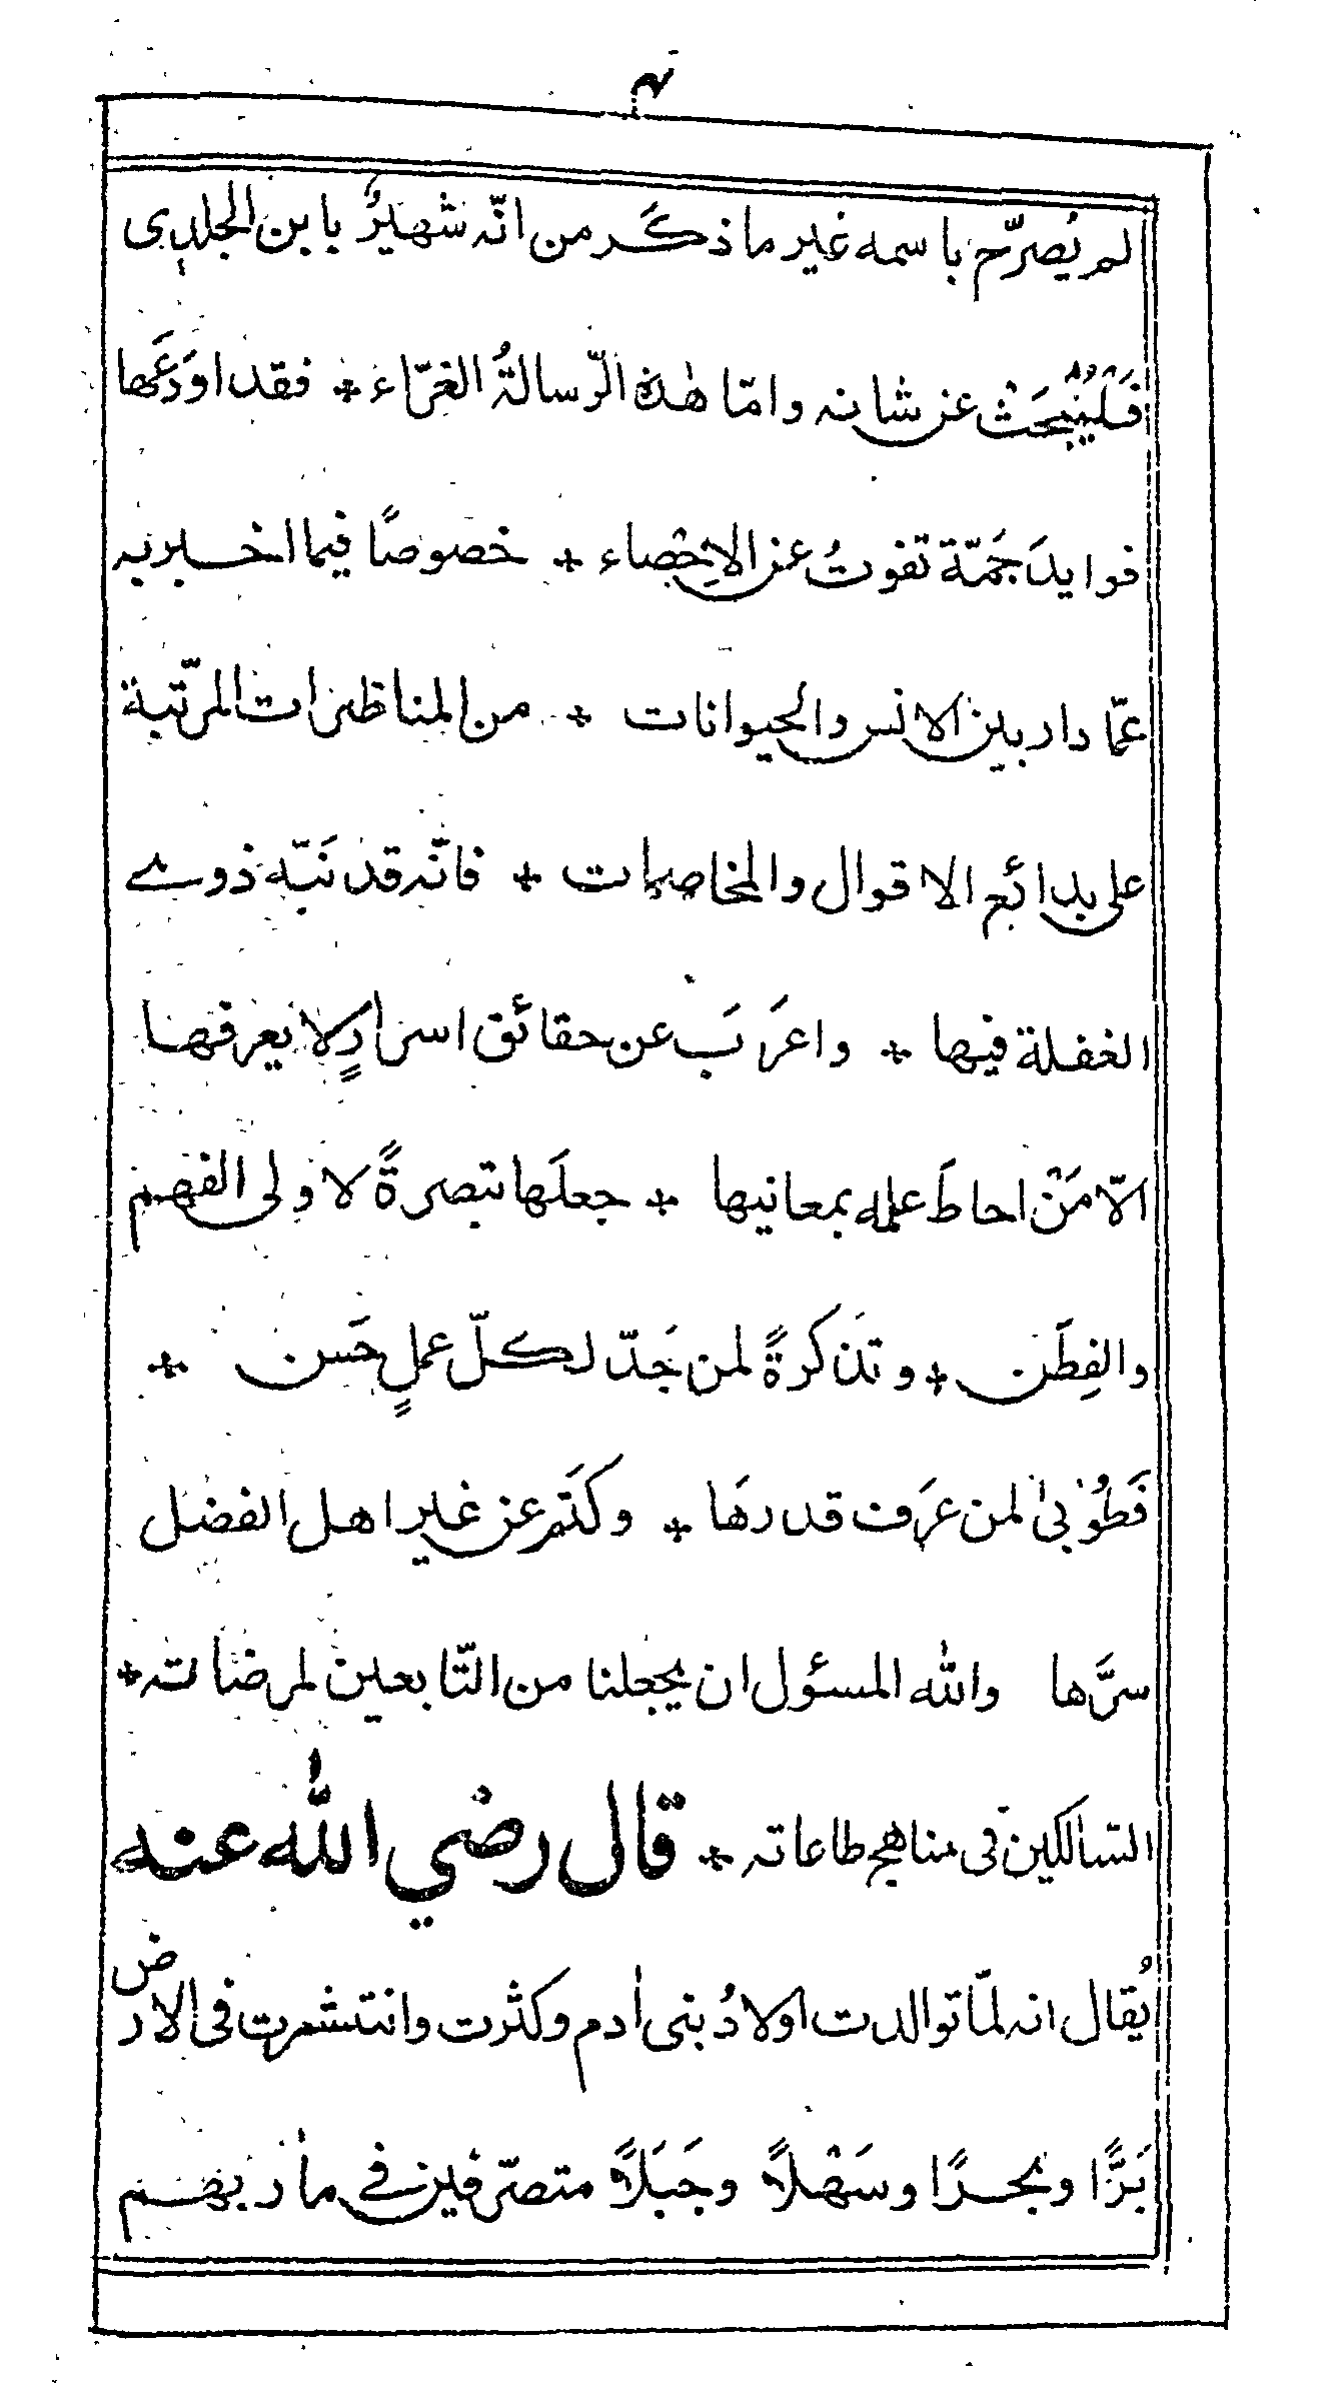 ۴
لم يُصرّح باسمه غير ما ذكر من انّه شهيرٌ بابن الجلدى
فَلْيُبْحَثْ عن شانه وامّا هٰذهٖ الرّسالةُ الغرّاء * فقد اودَعَها
فوايدَ جَمّة تفوتُ عن الاِحْصاء * خصوصًا فيما اخبر به
عمّا دار بين الانس والحيوانات * من المناظرات المرتّبة
على بدائع الاقوال والمخاصمات * فانّه قد نَبّه ذوے
الغفلة فيها * واعرَبَ عن حقائق اسرارٍ لا يعرفها
الّا مَنْ احاطَ علمه بمعانيها * جعلَها تبصرةً لاولى الفهم
والفِطَن * وتذكرةً لمن جَدّ لكلّ عملٍ حَسن *
فَطُوْبىٰ لمن عرَف قدرهَا * وكتَم عن غير اهل الفضل
سرَّها والله المسئول ان يجعلنا من التّابعين لمرضاته *
السّالكين فى مناهج طاعاته * قال رضي الله عنه
يُقال انه لمّا توالدت اولادُ بنى اٰدم وكثرت وانتشرت فى الارض
بَرًّا وبحرًا وسَهْلًا وجَبَلًا متصرّفين فے مآربهم